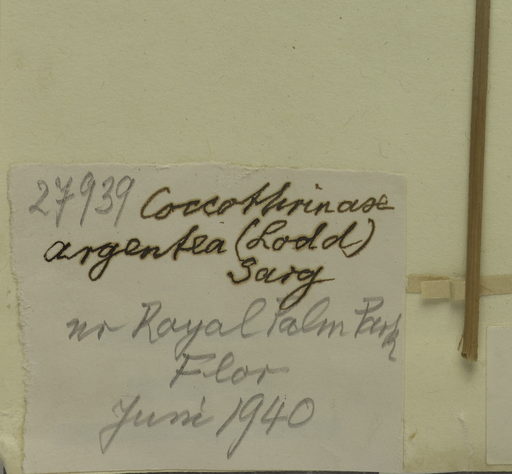 27939 Coccothrinax
argentea (Lodd)
Sarg
nr Royal Palm Park
Flor
Juni 1940